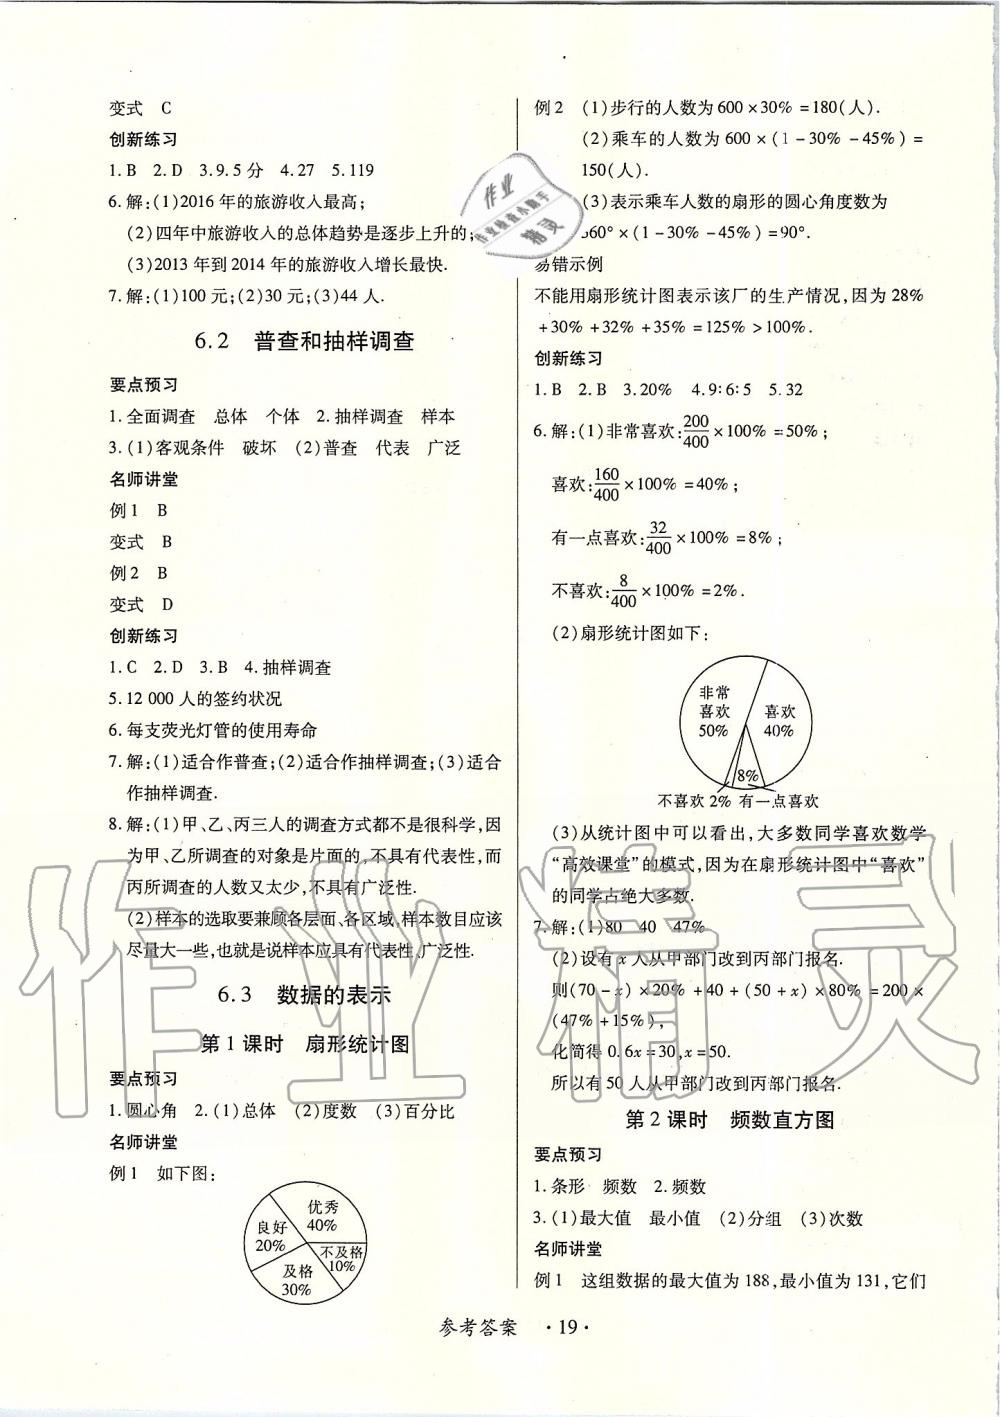 变式　C
创新练习
1.B　2.D　3.9.5分　4.27　5.119
6.解:(1)2016年的旅游收入最高;
(2)四年中旅游收入的总体趋势是逐步上升的;
(3)2013年到2014年的旅游收入增长最快.
7.解:(1)100元;(2)30元;(3)44人.
6.2　普查和抽样调查
要点预习
1.全面调查　总体　个体　2.抽样调查　样本
3.(1)客观条件　破坏　(2)普查　代表　广泛
名师讲堂
例1　B
变式　B
例2　B
变式　D
创新练习
1.C　2.D　3.B　4.抽样调查
5.12 000人的签约状况
6.每支荧光灯管的使用寿命
7.解:(1)适合作普查;(2)适合作抽样调查;(3)适合
作抽样调查.
8.解:(1)甲、乙、丙三人的调查方式都不是很科学,因
为甲、乙所调查的对象是片面的,不具有代表性,而
丙所调查的人数又太少,不具有广泛性.
(2)样本的选取要兼顾各层面、各区域,样本数目应该
尽量大一些,也就是说样本应具有代表性、广泛性.
6.3　数据的表示
第1课时　扇形统计图
要点预习
1.圆心角　2.(1)总体　(2)度数　(3)百分比
名师讲堂
例1　如下图:
优秀
40%
良好
20%
不及格
10%
及格
30%
例2　(1)步行的人数为600×30%=180(人).
(2)乘车的人数为600×(1-30%-45%)=
150(人).
(3)表示乘车人数的扇形的圆心角度数为
360°×(1-30%-45%)=90°.
易错示例
不能用扇形统计图表示该厂的生产情况,因为28%
+30%+32%+35%=125%>100%.
创新练习
1.B　2.B　3.20%　4.9:6:5　5.32
6.解:(1)非常喜欢:200/400×100%=50%;
喜欢:160/400×100%=40%;
有一点喜欢:32/400×100%=8%;
不喜欢:8/400×100%=2%.
(2)扇形统计图如下:
非常
喜欢
50%
喜欢
40%
8%
不喜欢2%　有一点喜欢
(3)从统计图中可以看出,大多数同学喜欢数学
“高效课堂”的模式,因为在扇形统计图中“喜欢”
的同学占绝大多数.
7.解:(1)80　40　47%
(2)设有x人从甲部门改到丙部门报名.
则(70-x)×20%+40+(50+x)×80%=200×
(47%+15%),
化简得0.6x=30,x=50.
所以有50人从甲部门改到丙部门报名.
第2课时　频数直方图
要点预习
1.条形　频数　2.频数
3.(1)最大值　最小值　(2)分组　(3)次数
名师讲堂
例1　这组数据的最大值为188,最小值为131,它们
参考答案　·19·
作业
作业检查小助手
精灵
作业精灵